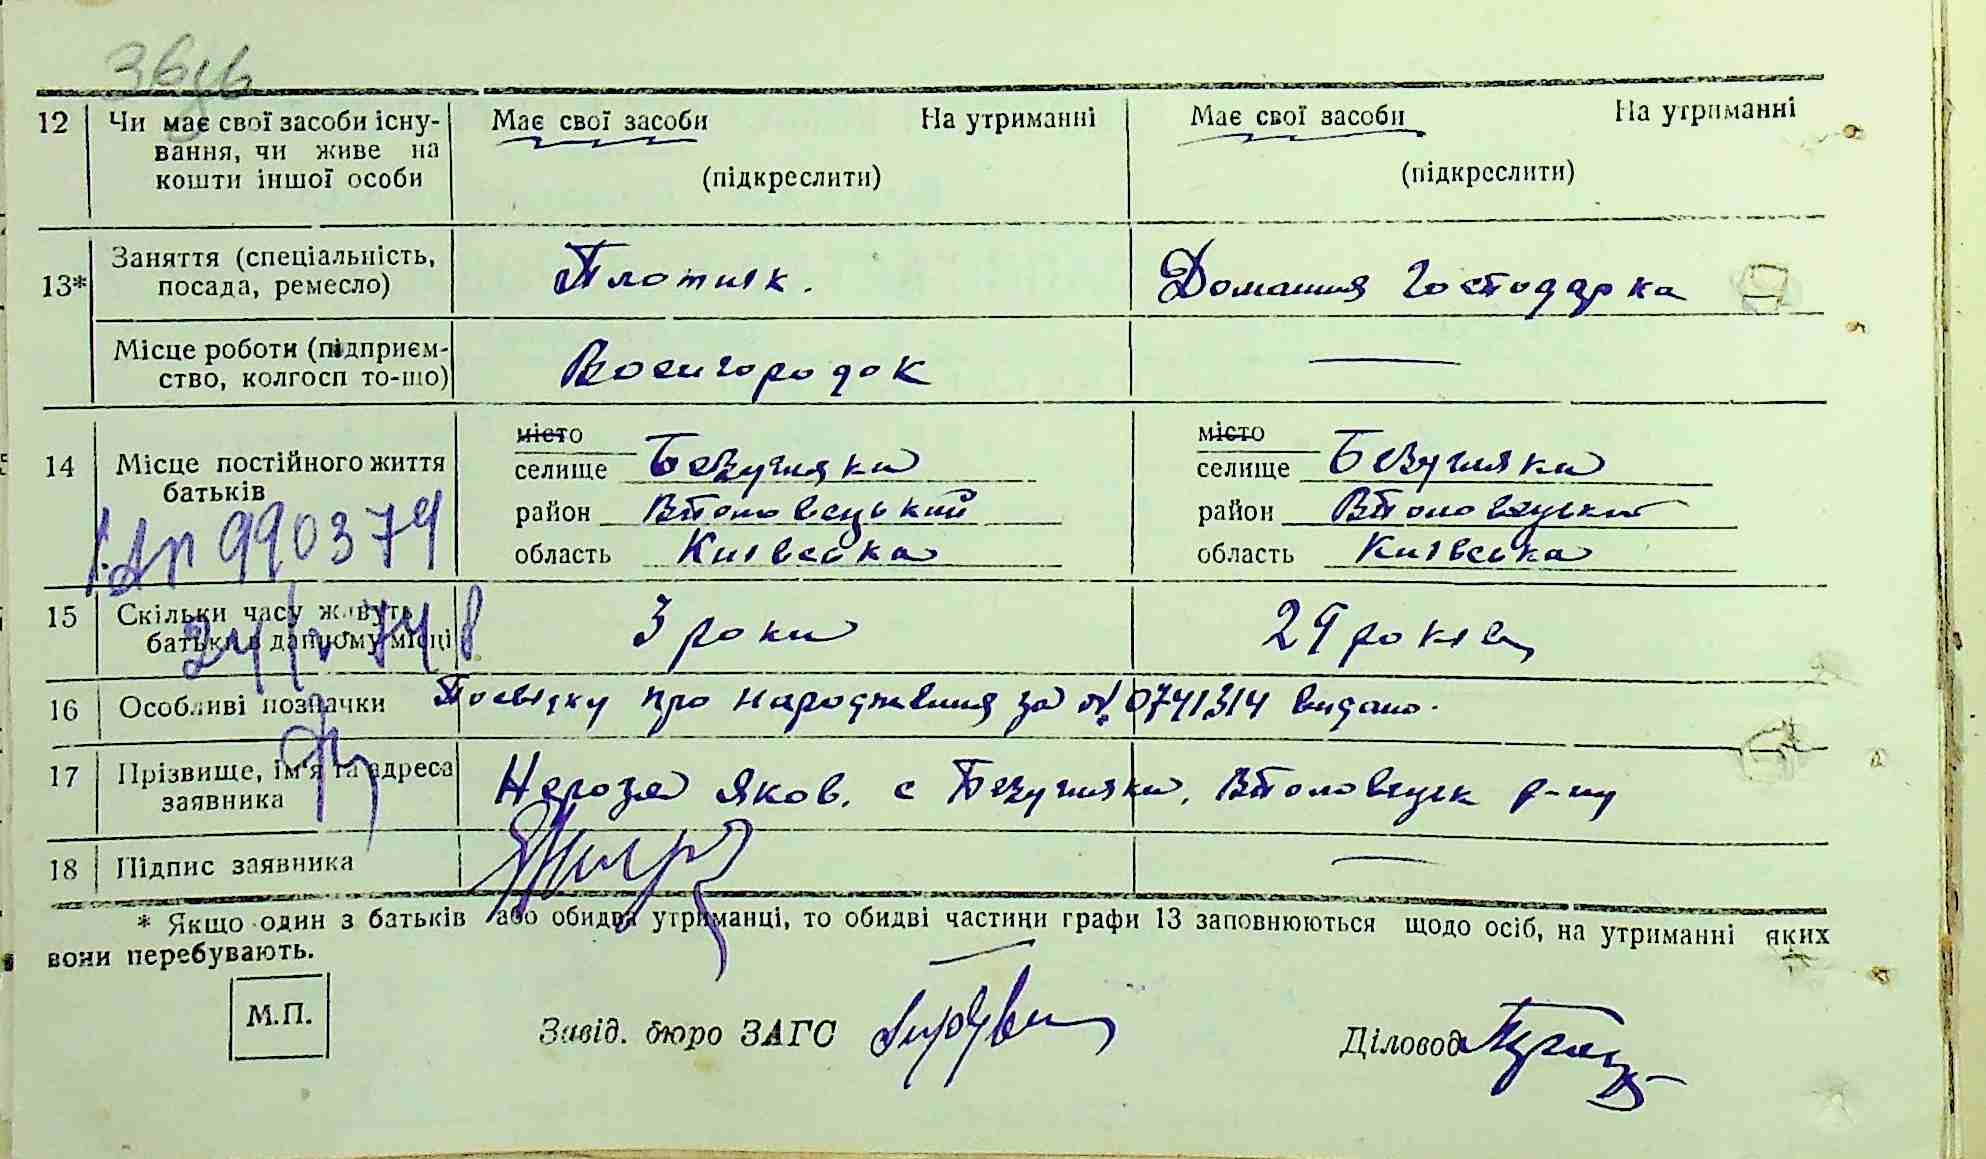 12 Чи має свої засоби існу- Має свої засоби На утриманні Має свої засоби На утриманні
вання, чи живе на
кошти іншої особи (підкреслити) (підкреслити)
13* Заняття (спеціальність, посада, ремесло) Плотник. Домашня Господарка
Місце роботи (підприєм-
ство, колгосп то-що) Воєнгородок —
місто місто
14 Місце постійного життя селище Безугляки селище Безугляки
батьків район Втоловецький район Втоловецький
990374 область Київська область Київська
15 Скільки часу живуть
батьки в данному місці 3 роки 29 років
16 Особливі позначки Посвідку про народження за № 0741314 видано.
17 Прізвище, ім'я та адреса
заявника Яков. с Безугляки, р-ну
18 Підпис заявника —
* Якщо один з батьків або обидва утриманці, то обидві частини графи 13 заповнюються щодо осіб, на утриманні яких
вони перебувають.
М.П.
Завід. бюро ЗАГС Діловод